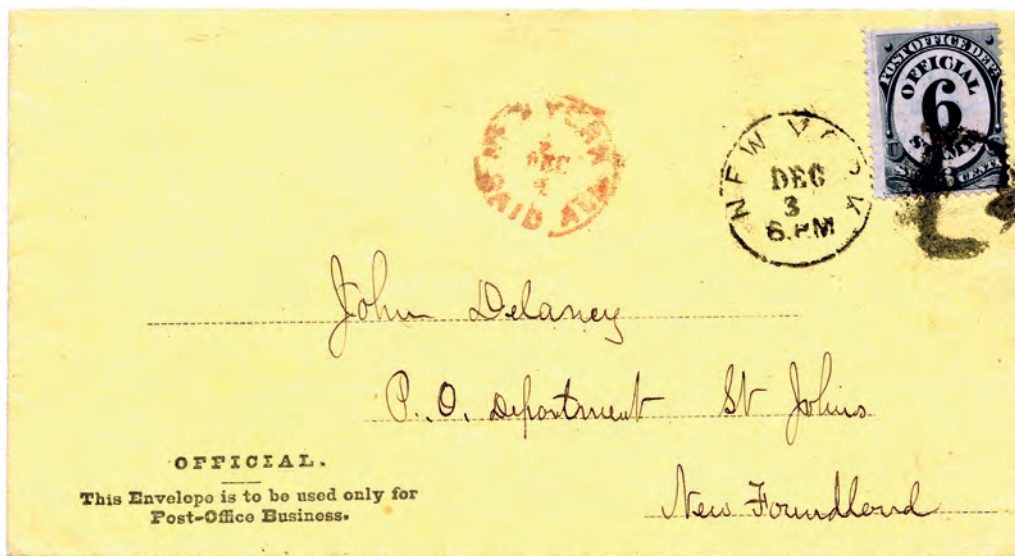 POST OFFICE DEPT.
OFFICIAL
6
STAMP
CENTS
NEW YORK
DEC
3
6.PM
NEW YORK
DEC
PAID ALL
John Delaney
P. O. Department St Johns
New Foundland
OFFICIAL.
This Envelope is to be used only for
Post-Office Business.